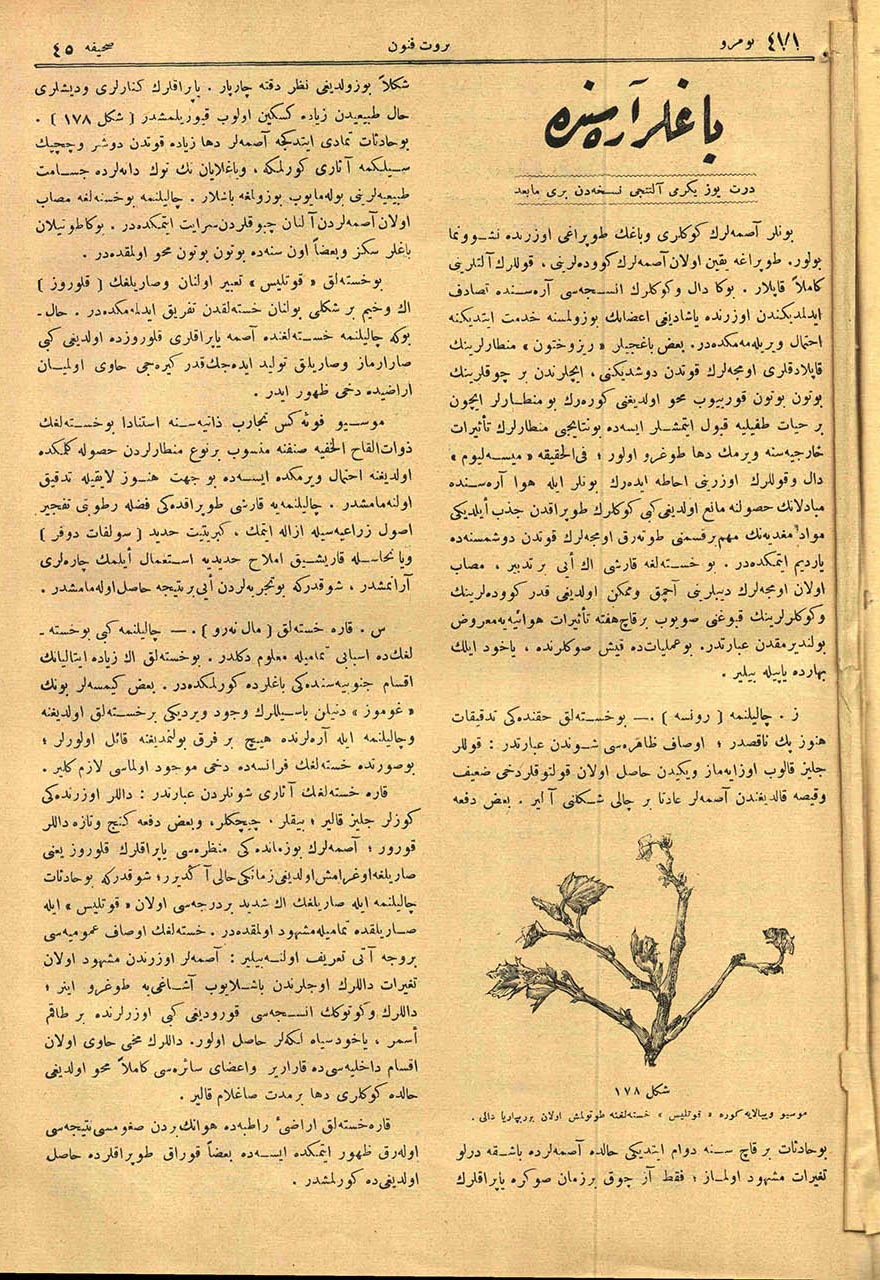 ٤٧١ نومرو
ثروت فنون
صحیفه ٤٥
باغلر آره‌سنده
درت یوز یگرمی آلتنجی نسخه‌دن بری مابعد
بونلر آصمه‌لرك كوكلری وباغك طوپراغی اوزرنده نشوونما
بولور. طوپراغه یقین اولان آصمه‌لرك كووده‌لرینی ، قوللرك آلتلرینی
كاملاً قاپلار . بوكا دال وكوكلرك انسجه‌سی آره‌سنده تصادف
ایدلمدیكندن اوزرنده یاشادیغی اعضانك بوزولمسنه خدمت ایتدیكنه
احتمال ویریله‌مه‌مكده‌در. بعض باغجیلر « ریزوختون » منطارلرینك
قاپلادقلری اومجه‌لرك قوتدن دوشدیكنی ، ایچلرندن بر چوقلرینك
بوتون بوتون قورییوب محو اولدیغنی كوره‌رك بو منطارلر ایچون
بر حیات طفیلیه قبول ایتمشلر ایسه‌ده بونتایجی منطارلرك تأثیرات
خارجیه‌سنه ویرمك دها طوغرو اولور ؛ فی‌الحقیقه « میسه‌لیوم »
دال وقوللرك اوزرینی احاطه ایده‌رك بونلر ایله هوا آره‌سنده
مبادلانك حصولنه مانع اولدیغی كبی كوكلرك طوپراقدن جذب أیلدیكی
مواد مغدیه‌نك مهم برقسمنی طوته‌رق اومجه‌لرك قوتدن دوشمسنه‌ده
یاردیم ایتمكده‌در. بو خسته‌لغه قارشی اك أیی بر تدبیر ، مصاب
اولان اومجه‌لرك دیبلرینی آچمق وممكن اولدیغی قدر كووده‌لرینك
وكوكلرلرینك قبوغنی صویوب برقاچ هفته تأثیرات هوائیه‌یه معروض
بولندیرمقدن عبارتدر. بوعملیات‌ده قیش صوكلرنده ، یاخود ایلك
بهارده یاپیله بیلیر .
ز . چالیلنمه [ رونسه ] .— بوخسته‌لق حقنده‌كی تدقیقات
هنوز پك ناقصدر ؛ اوصاف ظاهره‌سی شوندن عبارتدر : قوللر
جلیز قالوب اوزایه‌ماز ویكیدن حاصل اولان قولتوقلردخی ضعیف
وقیصه قالدیغندن آصمه‌لر عادتا بر چالی شكلنی آلیر . بعض دفعه
شكل ١٧٨
موسیو ویالایه كوره « قوتلیس » خسته‌لغنه طوتولمش اولان بر دالی .
بوحادثات برقاچ سنه دوام ایتدیكی حالده آصمه‌لرده باشقه درلو
تغیرات مشهود اولماز ؛ فقط آز چوق برزمان صوكره یاپراقلرك
شكلاً بوزولدیغی نظر دقته چارپار . یاپراقلرك كنارلری ودیشلری
حال طبیعیدن زیاده كسكین اولوب قیوریلمشدر [ شكل ١٧٨ ] .
بوحادثات تمادی ایتدكجه آصمه‌لر دها زیاده قوتدن دوشر وچیچك
سیلكمه آثاری كورلمكه ، وباغلایان تك توك دانه‌لرده جسامت
طبیعیه‌لرینی بوله‌مایوب بوزولمغه باشلار . چالیلنمه بوخسته‌لغه مصاب
اولان آصمه‌لردن آلنان چبوقلردن سرایت ایتمكده‌در . بوكا طوتیلان
باغلر سكز وبعضاً اون سنه‌ده بوتون بوتون محو اولمقده‌در .
بوخسته‌لق « قوتلیس » تعبیر اولنان وصاریلغك [ قلوروز ]
اك وخیم بر شكلی بولنان خسته‌لقدن تفریق ایدلمه‌مكده‌در . حال-
بوكه چالیلنمه خسته‌لغنده آصمه یاپراقلری قلوروزده اولدیغی كبی
صارارماز وصاریلق تولید ایده‌جك قدر كیره‌جی حاوی اولمیان
اراضیده دخی ظهور ایدر .
موسیو فوئه‌كس تجارب ذاتیه‌سنه استنادا بوخسته‌لغك
ذوات‌القاح الخفیه صنفنه منسوب برنوع منطارلردن حصوله كلمكده
اولدیغنه احتمال ویرمكده ایسه‌ده بو جهت هنوز لایقیله تدقیق
اولنه‌مامشدر . چالیلنمه‌یه قارشی طوپراقده‌كی فضله رطوبتی تفجیر
اصول زراعیه‌سیله ازاله ایتمك ، كبریتیت حدید [ سولفات دوفر ]
ویا نحاسله قاریشیق املاح حدیدیه استعمال أیلمك چاره‌لری
آرانمشدر ، شوقدركه بوتجربه‌لردن أیی برنتیجه حاصل اوله‌مامشدر .
س . قاره خسته‌لق [ مال نه‌رو ] .— چالیلنمه كبی بوخسته-
لغك‌ده اسبابی تمامیله معلوم دكلدر . بوخسته‌لق اك زیاده ایتالیانك
اقسام جنوبیه‌سنده‌كی باغلرده كورلمكده‌در . بعض كیمسه‌لر بونك
« غوموز » دنیلن باسیللرك وجود ویردیكی برخسته‌لق اولدیغنه
وچالیلنمه ایله آره‌لرنده هیچ بر فرق بولنمدیغنه قائل اولورلر ؛
بوصورتده خسته‌لغك فرانسه‌ده دخی موجود اولماسی لازم كلیر .
قاره خسته‌لغك آثاری شونلردن عبارتدر : داللر اوزرنده‌كی
كوزلر جلیز قالیر ؛ بیقلر ، چیچكلر، وبعض دفعه كنج وتازه داللر
قورور ؛ آصمه‌لرك بوزمانده‌كی منظره‌سی یاپراقلرك قلوروز یعنی
صاریلغه اوغرامش اولدیغی زمانكی حالی آكدیرر؛ شوقدركه بوحادثات
چالیلنمه ایله صاریلغك اك شدید بردرجه‌سی اولان « قوتلیس » ایله
صاریلقده تمامیله مشهود اولمقده‌در . خسته‌لغك اوصاف عمومیه‌سی
بروجه آتی تعریف اولنه‌بیلیر : آصمه‌لر اوزرندن مشهود اولان
تغیرات داللرك اوجلرندن باشلایوب آشاغی‌یه طوغرو اینر ؛
داللرك وكوتوكك انسجه‌سی قورودیغی كبی اوزرلرنده بر طاقم
أسمر ، یاخود سیاه لكه‌لر حاصل اولور. داللرك مخی حاوی اولان
اقسام داخلیه‌سی‌ده قاراریر واعضای سائره‌سی كاملاً محو اولدیغی
حالده كوكلری دها برمدت صاغلام قالیر .
قاره‌خسته‌لق اراضیٔ راطبه‌ده هوانك بردن صغومسی نتیجه‌سی
اوله‌رق ظهور ایتمكده ایسه‌ده بعضاً قوراق طوپراقلرده حاصل
اولدیغی‌ده كورلمشدر .